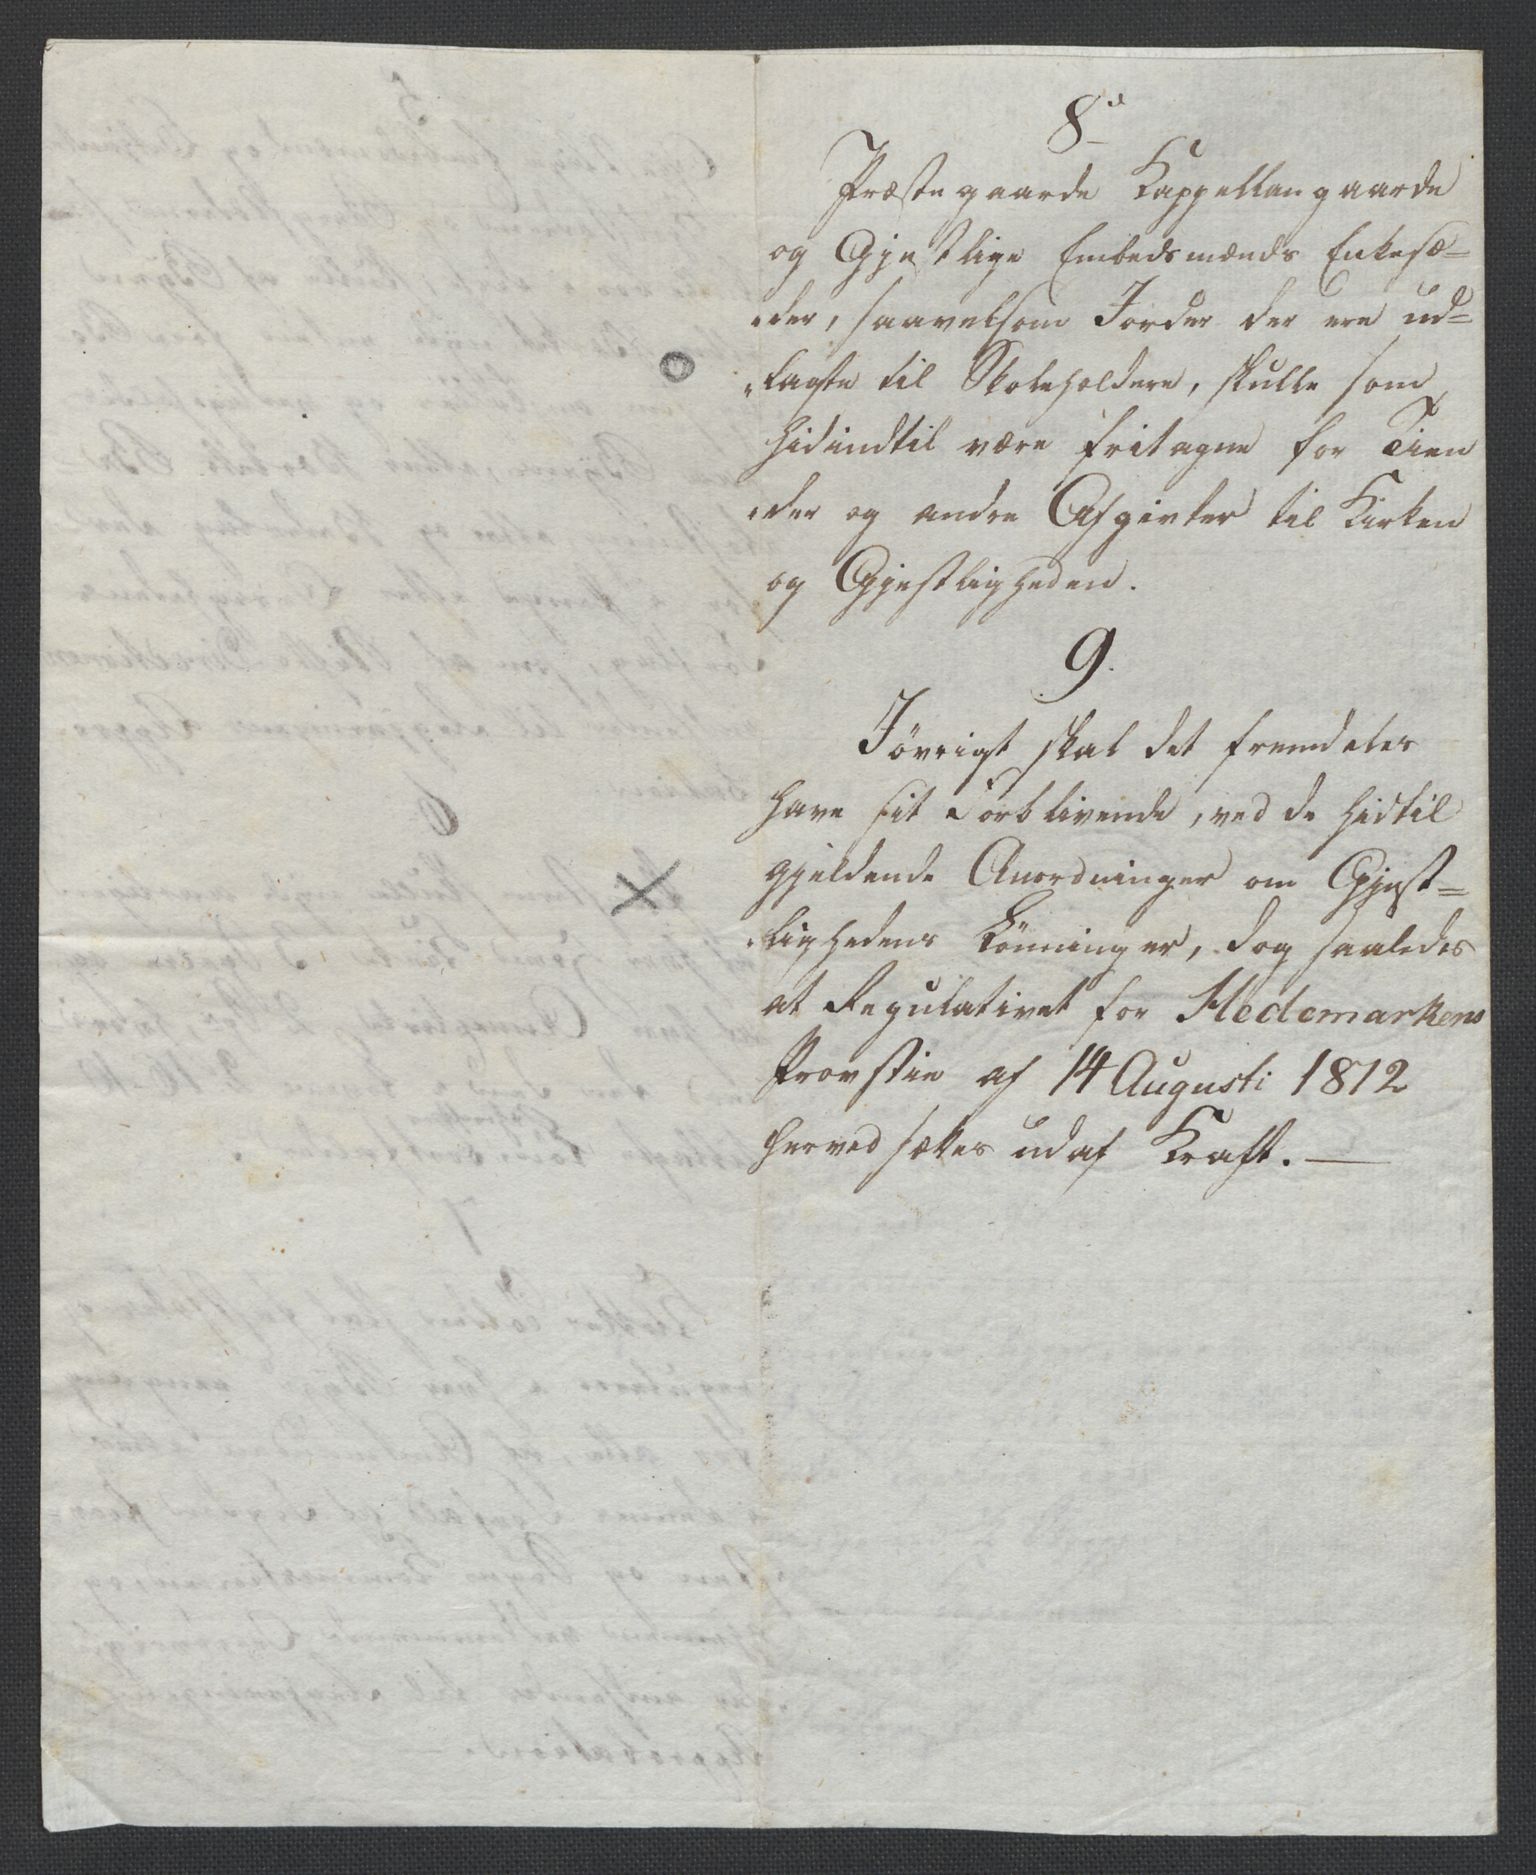 8
Præstegaarde Kappellangaarde
og Gjestlige Embedsmænds Enkesæ=
„der, saavelsom Jorder der ere ud=
„lagte til Skoleholdere, skulle som
hidindtil være fritagne for Tien
„der og andre Afgivter til Kirken
og Gjestligheden.
9.
Iövrigt skal det fremdeles
have sit Forblivende, ved de hidtil
gjeldende Anordninger om Gjest=
„lighedens Lönninger, dog saaledes
at Regulativet for Hedemarkens
Provstie af 14 Augusti 1812
herved sættes udaf Kraft. —